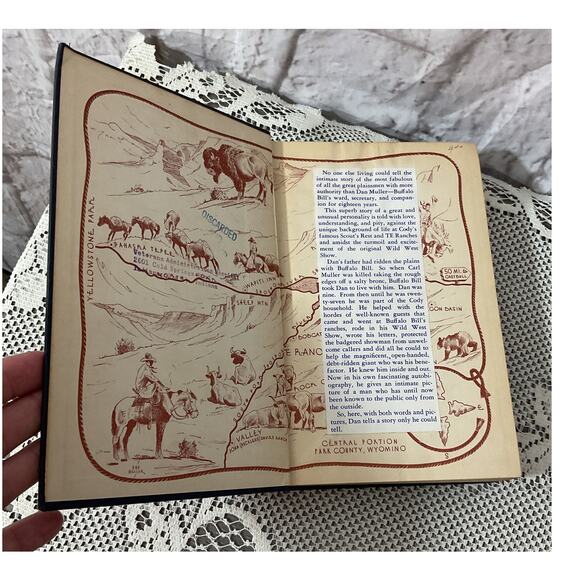 YELLOWSTONE PARK
DISCARDED
Veterans Administration
2601 Cold Spring
WAPITI INN
CAREY MTN.
VALLEY
DAN
MULLER
No one else living could tell the
intimate story of the most fabulous
of all the great plainsmen with more
authority than Dan Muller—Buffalo
Bill's ward, secretary, and compan-
ion for eighteen years.
This superb story of a great and
unusual personality is told with love,
understanding, and pity, against the
unique background of life at Cody's
famous Scout's Rest and TE Ranches
and amidst the turmoil and excite-
ment of the original Wild West
Show.
Dan's father had ridden the plains
with Buffalo Bill. So when Carl
Muller was killed taking the rough
edges off a salty bronc, Buffalo Bill
took Dan to live with him. Dan was
nine. From then until he was twen-
ty-seven he was part of the Cody
household. He helped with the
hordes of well-known guests that
came and went at Buffalo Bill's
ranches, rode in his Wild West
Show, wrote his letters, protected
the badgered showman from unwel-
come callers and did all he could to
help the magnificent, open-handed,
debt-ridden giant who was his bene-
factor. He knew him inside and out.
Now in his own fascinating autobi-
ography, he gives an intimate pic-
ture of a man who has until now
been known to the public only from
the outside.
So, here, with both words and pic-
tures, Dan tells a story only he could
tell.
50 MI.
BASIN
CENTRAL PORTION
PARK COUNTY, WYOMING
S